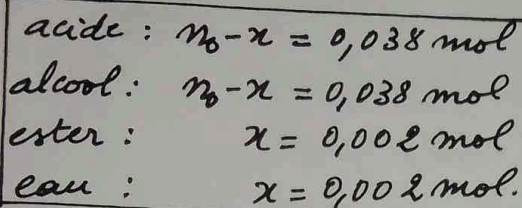 acide : n₀-x = 0,038 mol
alcool : n₀-x = 0,038 mol
ester : x = 0,002 mol
eau : x = 0,002 mol.